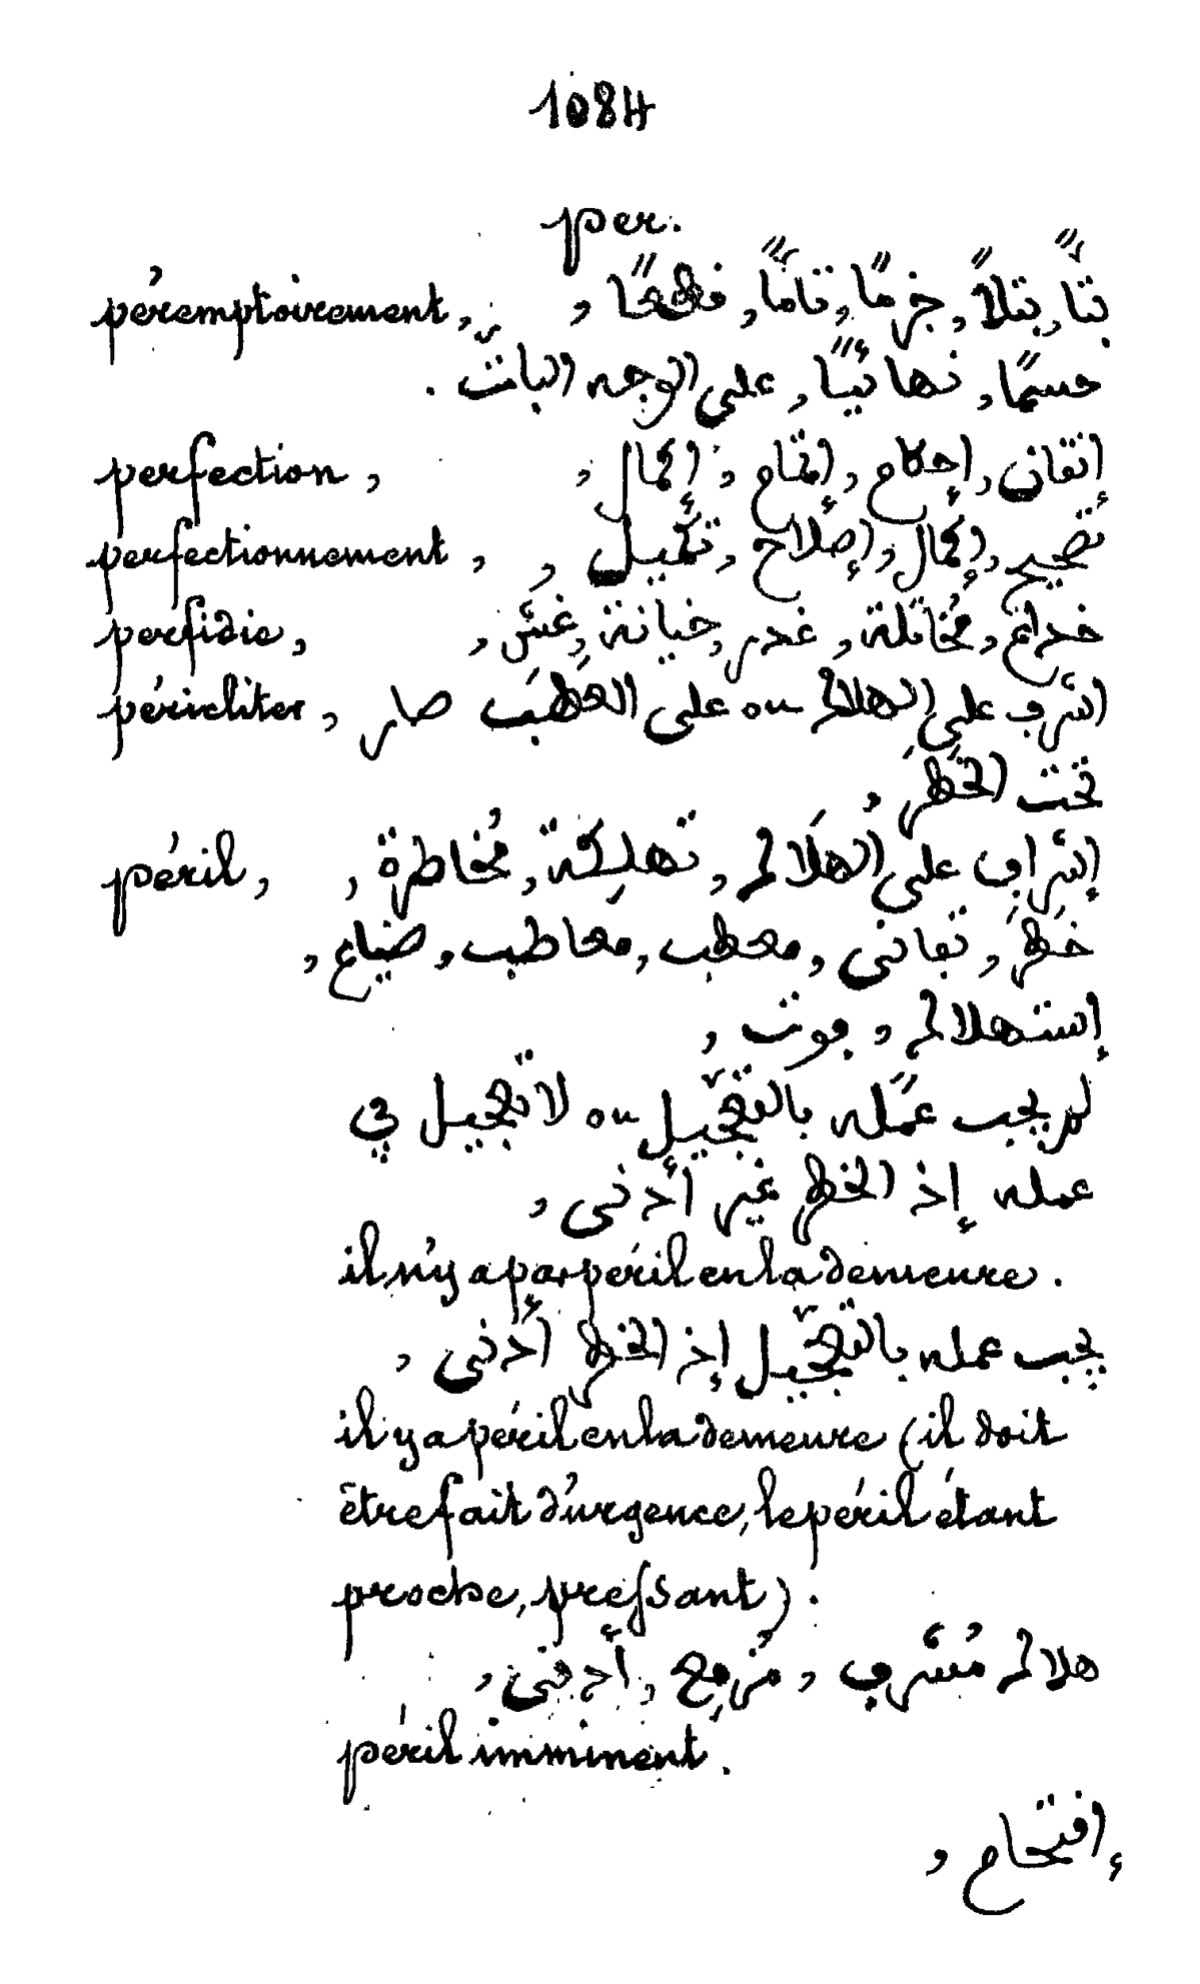 1084
per.
péremptoirement, بتّاً, بتلاً, جزمًا, تامّاً, قطعًا,
حسمًا, نهائيًّا, على الوجه الباتّ.
perfection, إتقان, إحكام, إتمام, إكمال,
perfectionnement, تصحيح, إكمال, إصلاح, تكميل,
perfidie, خداع, مُخاتلة, غدر, خيانة, غشّ,
péricliter, أشرف على الهلاك ou على العطب صار
تحت الخطر,
péril, إشراف على الهلاك, تهلكة, مُخاطرة,
خطر, تفانى, معطب, معاطب, ضياع,
إستهلاك, موت,
لم يجب عمله بالتعجيل ou لا تعجيل في
عمله إذ الخطر غير أدنى,
il n'y a pas péril en la demeure.
يجب عمله بالتعجيل إذ الخطر أدنى,
il y a péril en la demeure (il doit
être fait d'urgence, le péril étant
proche, pressant).
هلاك مُشرف, مُزمع, أدنى,
péril imminent.
إقتحام,